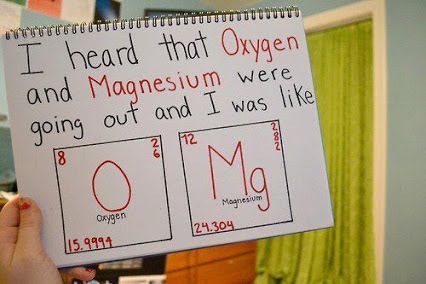 I heard that Oxygen
and Magnesium were
going out and I was like
8
2
6
O
Oxygen
15.9994
12
2
8
2
Mg
Magnesium
24.304